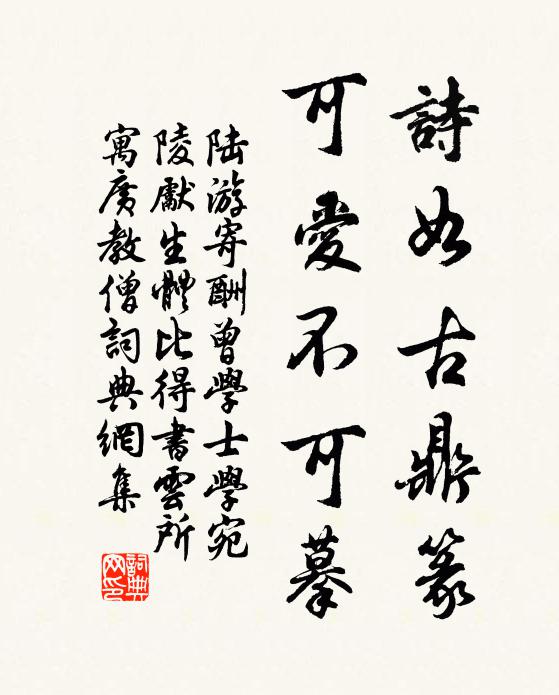 詩如古鼎篆
可愛不可摹
陸游寄酬曾學士學宛
陵獻生體比得書雲所
寓廣教僧詞典網集
詞典
网印